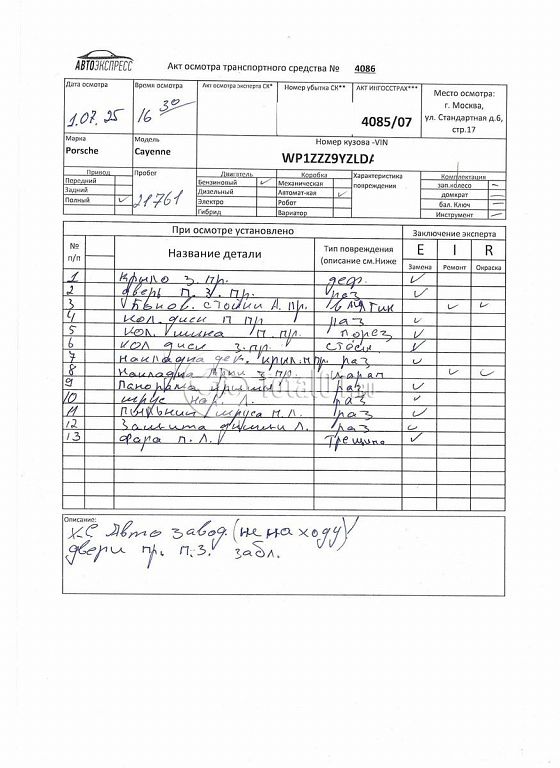 АВТОЭКСПРЕСС
Акт осмотра транспортного средства № 4086
Дата осмотра Время осмотра Акт осмотра эксперта СК* Номер убытка СК** АКТ ИНГОССТРАХ*** Место осмотра:
1.07.25 16 30 4085/07 г. Москва,
ул. Стандартная д.6,
стр.17
Марка Модель Номер кузова -VIN
Porsche Cayenne WP1ZZZ9YZLDA
Привод Пробег Двигатель Коробка Характеристика повреждения Комплектация
Передний Бензиновый ✓ Механическая зап.колесо –
Задний 21761 Дизельный Автомат-кая ✓ домкрат –
Полный ✓ Электро Робот бал. Ключ –
Гибрид Вариатор Инструмент ✓
При осмотре установлено Заключение эксперта
№ п/п Название детали Тип повреждения (описание см.Ниже E I R
Замена Ремонт Окраска
1 крыло з. пр. деф. ✓
2 дверь п. з. пр. раз ✓
3 Боков. стойки А. пр. вмятин ✓ ✓
4 кол. диск п пр раз ✓
5 кол. шина п. пр. порез ✓
6 кол диск з. пр. ✓
7 накладка крыл. пр раз ✓
8 накладка арки з пр. царап ✓ ✓
9 Панорама крыши раз ✓
10 шрус нар. Л. раз ✓
11 Пыльник шруса п.Л. раз ✓
12 Защита Л. раз ✓
13 фара п. Л. трещина ✓
Описание:
Х-С Авто завод. (не на ходу)
двери пр. п.з. забл.